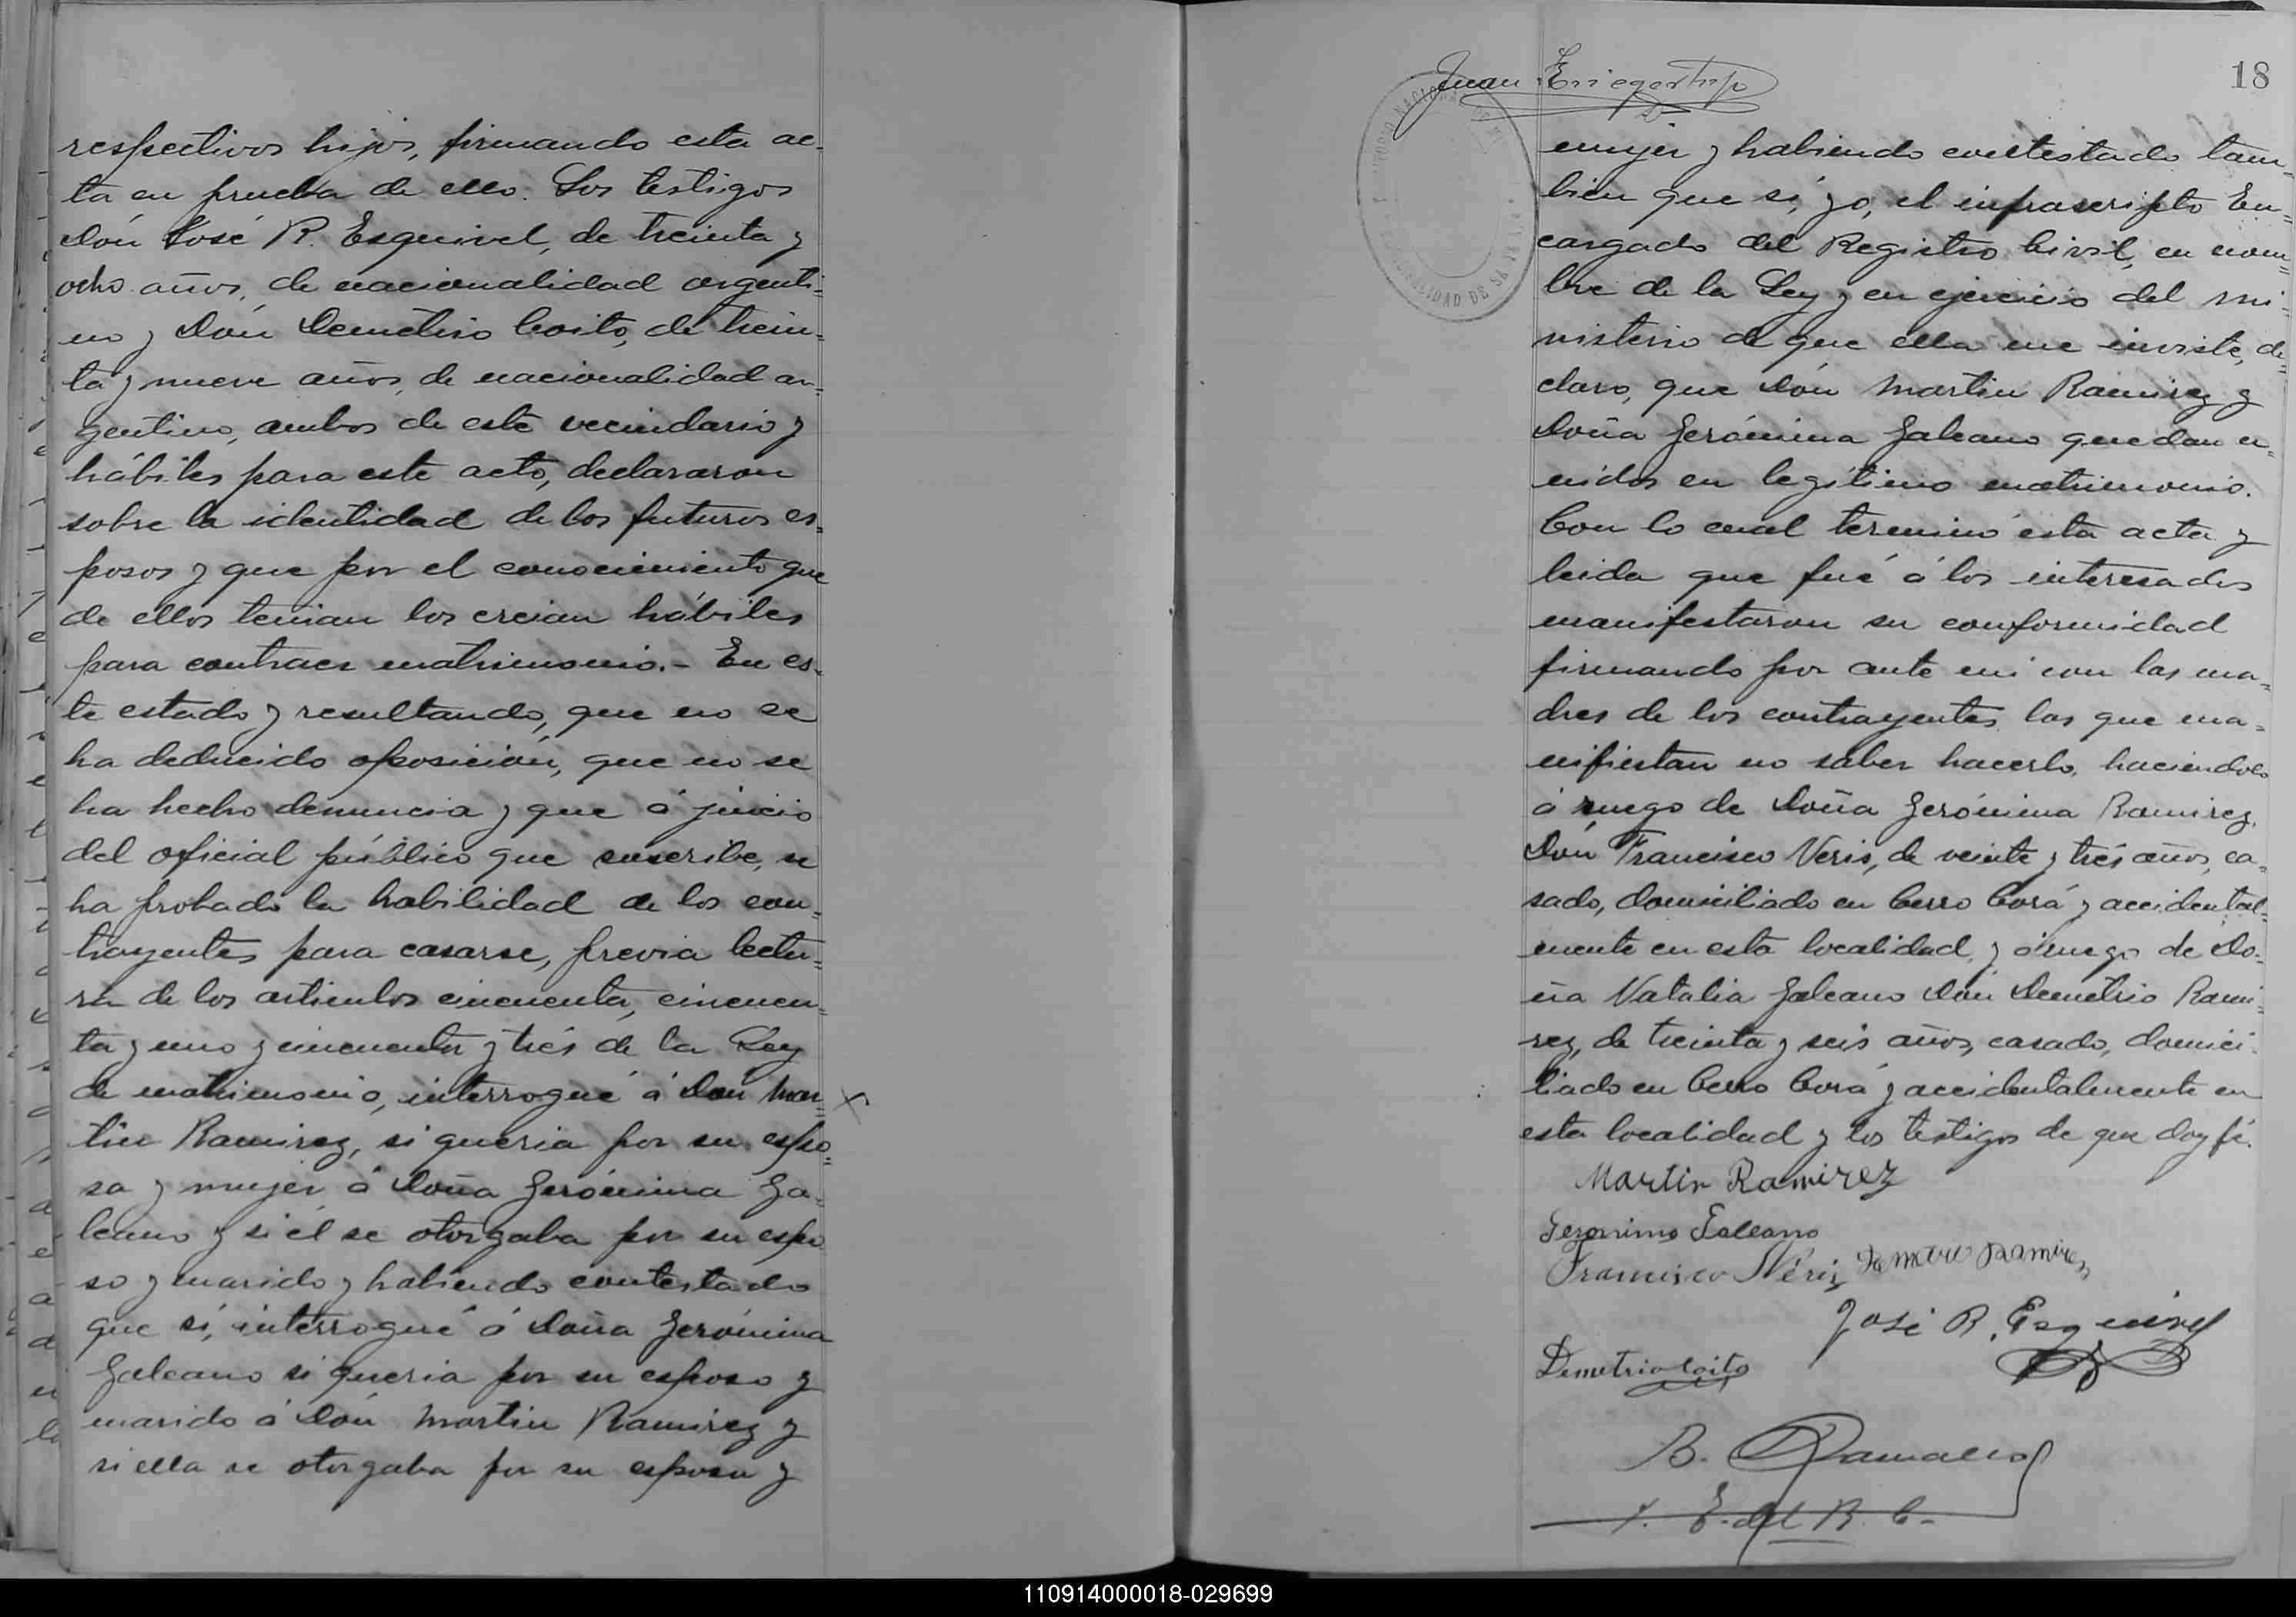 respectivos hijos, firmando esta ac-
ta en prueba de ello. Los testigos
Dón José R. Esquivel, de treinta y
ocho años, de nacionalidad argenti=
no y Dón Demétrio Coito, de trein=
ta y nueve años, de nacionalidad ar=
gentino, ambos de este vecindario y
hábiles para este acto, declararon
sobre la identidad de los futuros es=
posos y que por el conocimiento que
de ellos tenian los creian hábiles
para contraer matrimonio.- En es=
te estado y resultando, que no se
ha deducido oposición, que no se
ha hecho denuncia y que á juicio
del oficial público que suscribe, se
ha probado la habilidad de los con=
trayentes para casarse, previa lectu=
ra de los articulos cincuenta, cincuen=
ta y uno y cincuenta y trés de la Ley
de matrimonio, interrogué á Dón Mar=
tin Ramirez, si queria por su espo=
sa y mujer á Doña Gerónima Ga=
leano y si él se otorgaba por su espo
so y marido y habiendo contestado
que sí, interrogué á Doña Gerónima
Galeano si queria por su esposo y
marido á Dón Martin Ramirez y
si ella se otorgaba por su esposa y
18
Juan
mujer y habiendo contestado tam=
bien que sí, yo, el infrascripto En=
cargado del Registro Civil, en nom=
bre de la Ley y en ejercicio del mi=
nisterio de que ella me inviste, de=
claro, que Dón Martin Ramirez y
Doña Gerónima Galeano quedan u=
nidos en legítimo matrimonio.
Con lo cual terminó esta acta y
leida que fué á los interesados
manifestaron su conformidad
firmando por ante mi con las ma=
dres de los contrayentes las que ma=
nifiestan no saber hacerlo, haciendolo
á ruego de Doña Gerónima Ramirez,
Dón Francisco Neris, de veinte y trés años, ca=
sado, domiciliado en Cerro Corá y accidental=
mente en esta localidad, y á ruego de Do=
ña Natalia Galeano Dón Demetrio Rami=
rez, de treinta y seis años, casado, domici=
liado en Cerro Corá y accidentalmente en
esta localidad y los testigos de que doy fé.
Martin Ramirez
Geronima Galeano
Francisco Néris Ramirez
José R. Esquivel
Demetrio Coito
B.
E. del R. C.
110914000018-029699